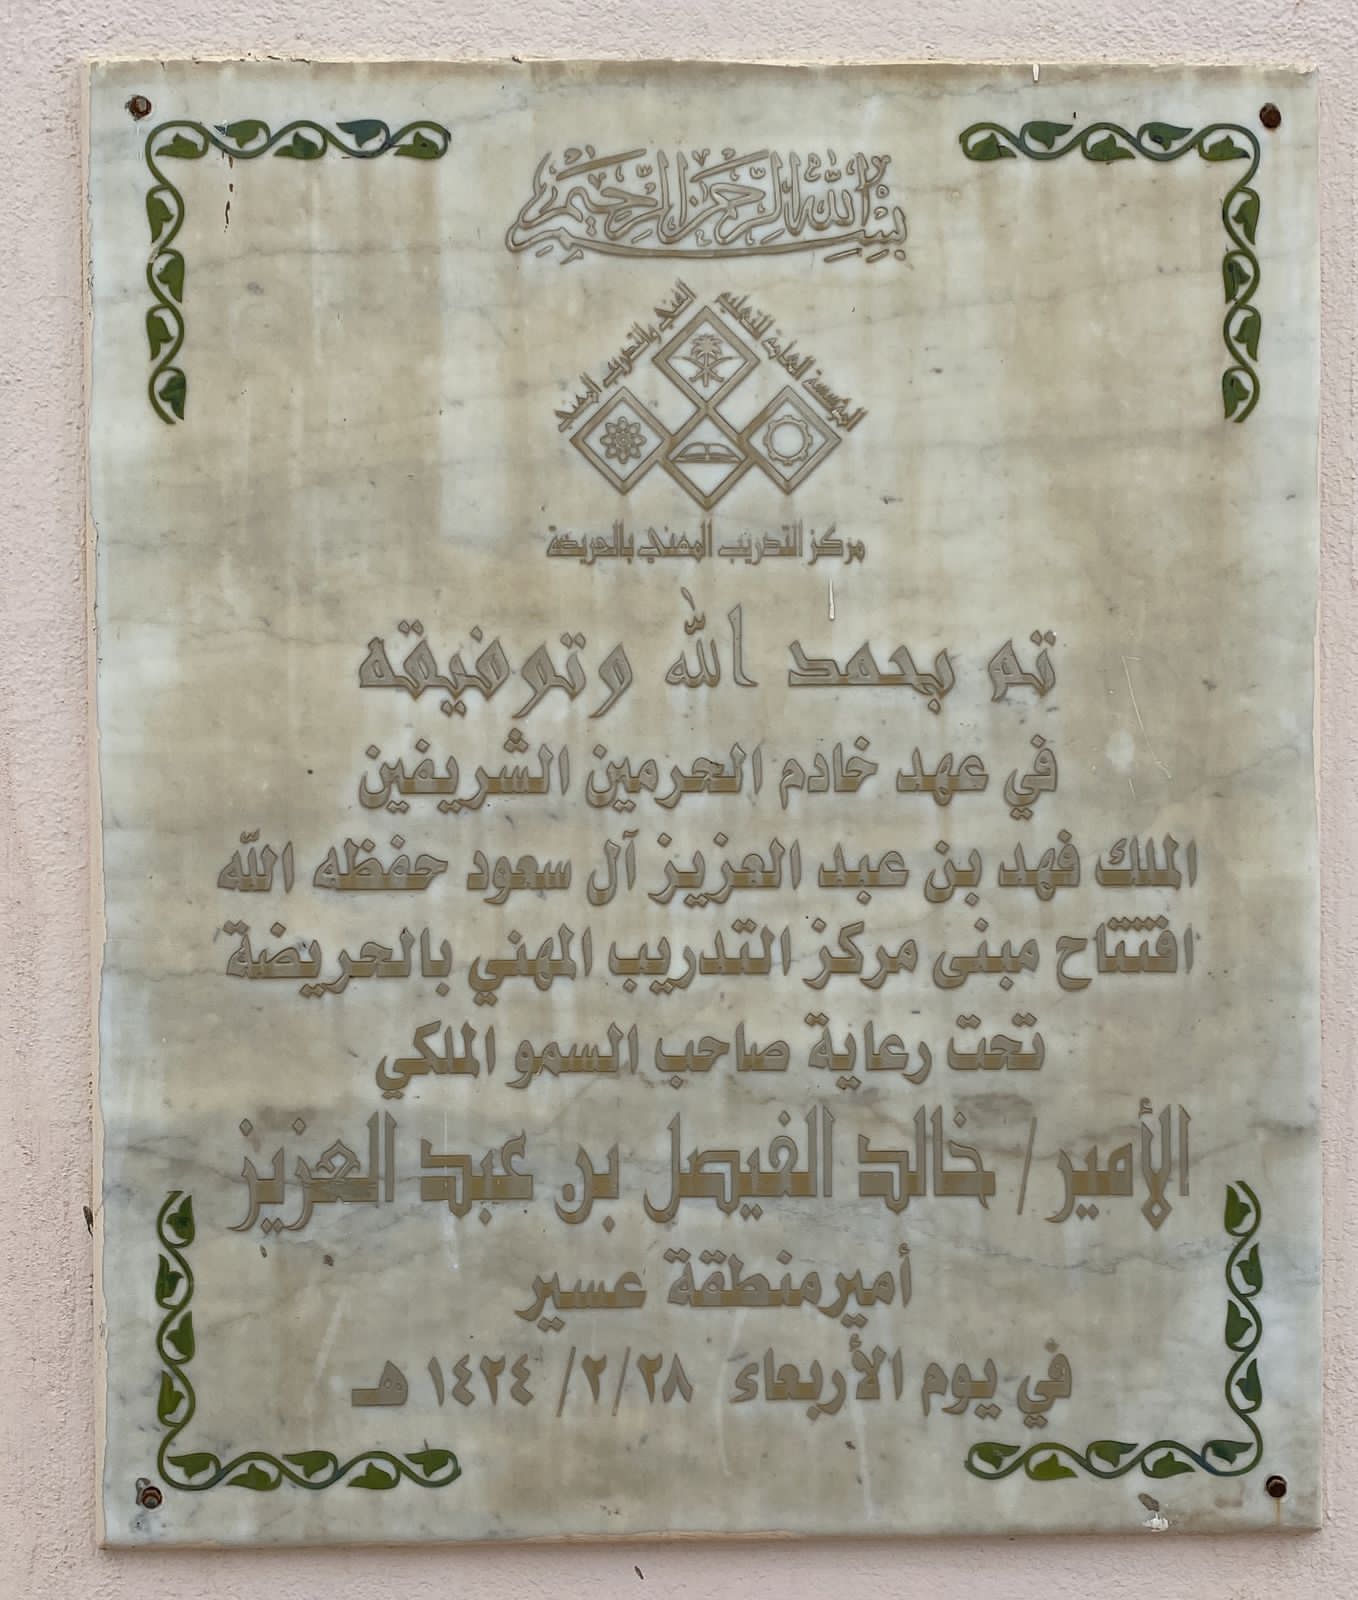 بسم الله الرحمن الرحيم
المؤسسة العامة للتعليم الفني والتدريب المهني
مركز التدريب المهني بالحريضة
تم بحمد الله وتوفيقه
في عهد خادم الحرمين الشريفين
الملك فهد بن عبد العزيز آل سعود حفظه الله
افتتاح مبنى مركز التدريب المهني بالحريضة
تحت رعاية صاحب السمو الملكي
الأمير / خالد الفيصل بن عبد العزيز
أمير منطقة عسير
في يوم الأربعاء ٢٨/٢/ ١٤٢٤ هـ